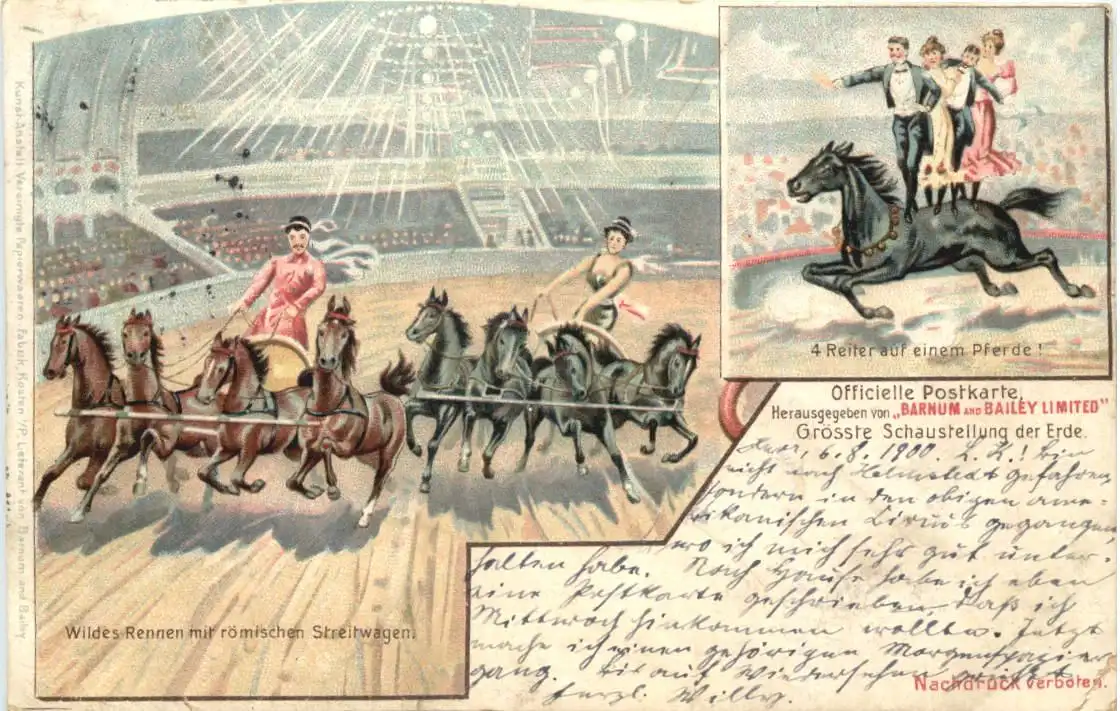 4 Reiter auf einem Pferde!
Officielle Postkarte,
Herausgegeben von „BARNUM AND BAILEY LIMITED”
Grösste Schaustellung der Erde.
6.8.1900. L. K.! bin
nicht nach Helmstedt gefahren
sondern in den obigen ame-
rikanischen Circus gegangen
wo ich mich sehr gut unter-
halten habe. Nach Hause habe ich eben
eine Postkarte geschrieben, daß ich
Mittwoch hinkommen wollte. Jetzt
mache ich einen gehörigen Morgenspazier-
gang. auf Wiedersehen
herzl. Willy.
Nachdruck verboten.
Wildes Rennen mit römischen Streitwagen.
Kunst-Anstalt Vereinigte Papierwaaren-Fabrik, Kosten i/P. Lieferant von Barnum and Bailey